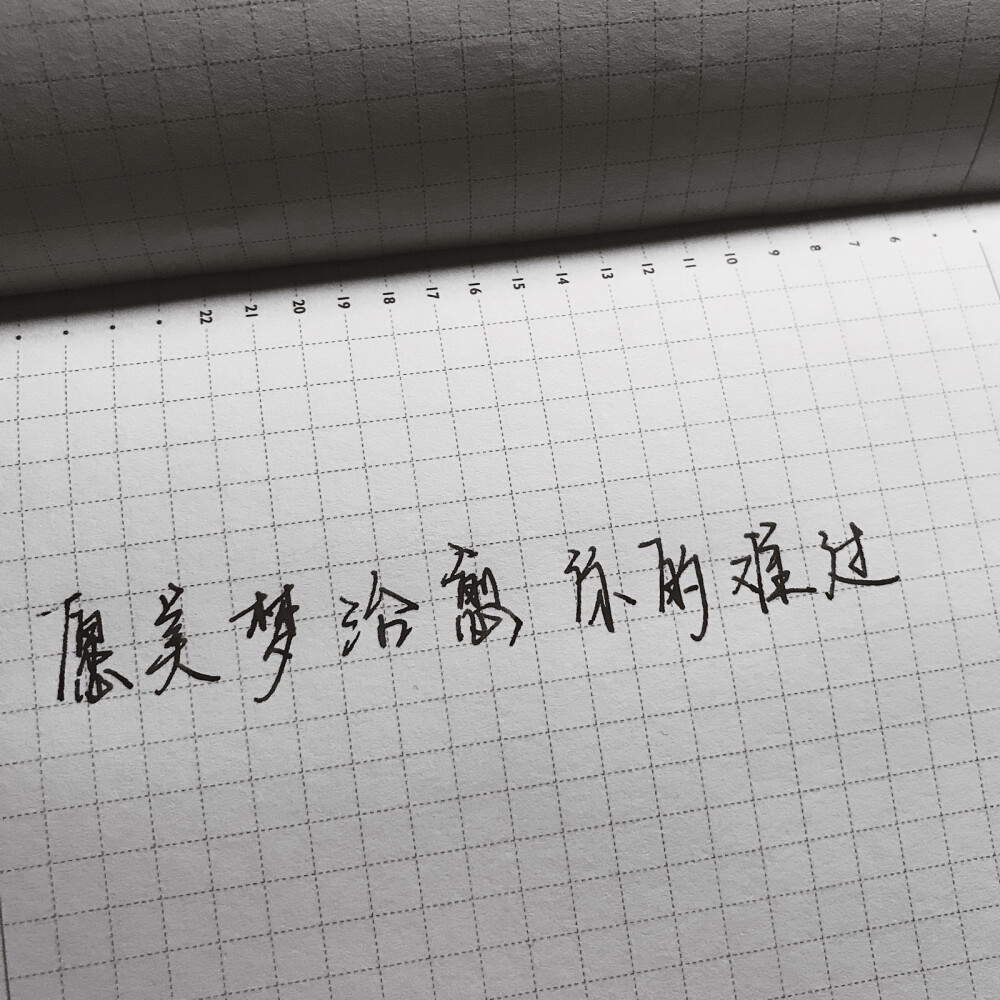 22 21 20 19 18 17 16 15 14 13 12 11 10 9 8 7 6
愿美梦治愈你的难过